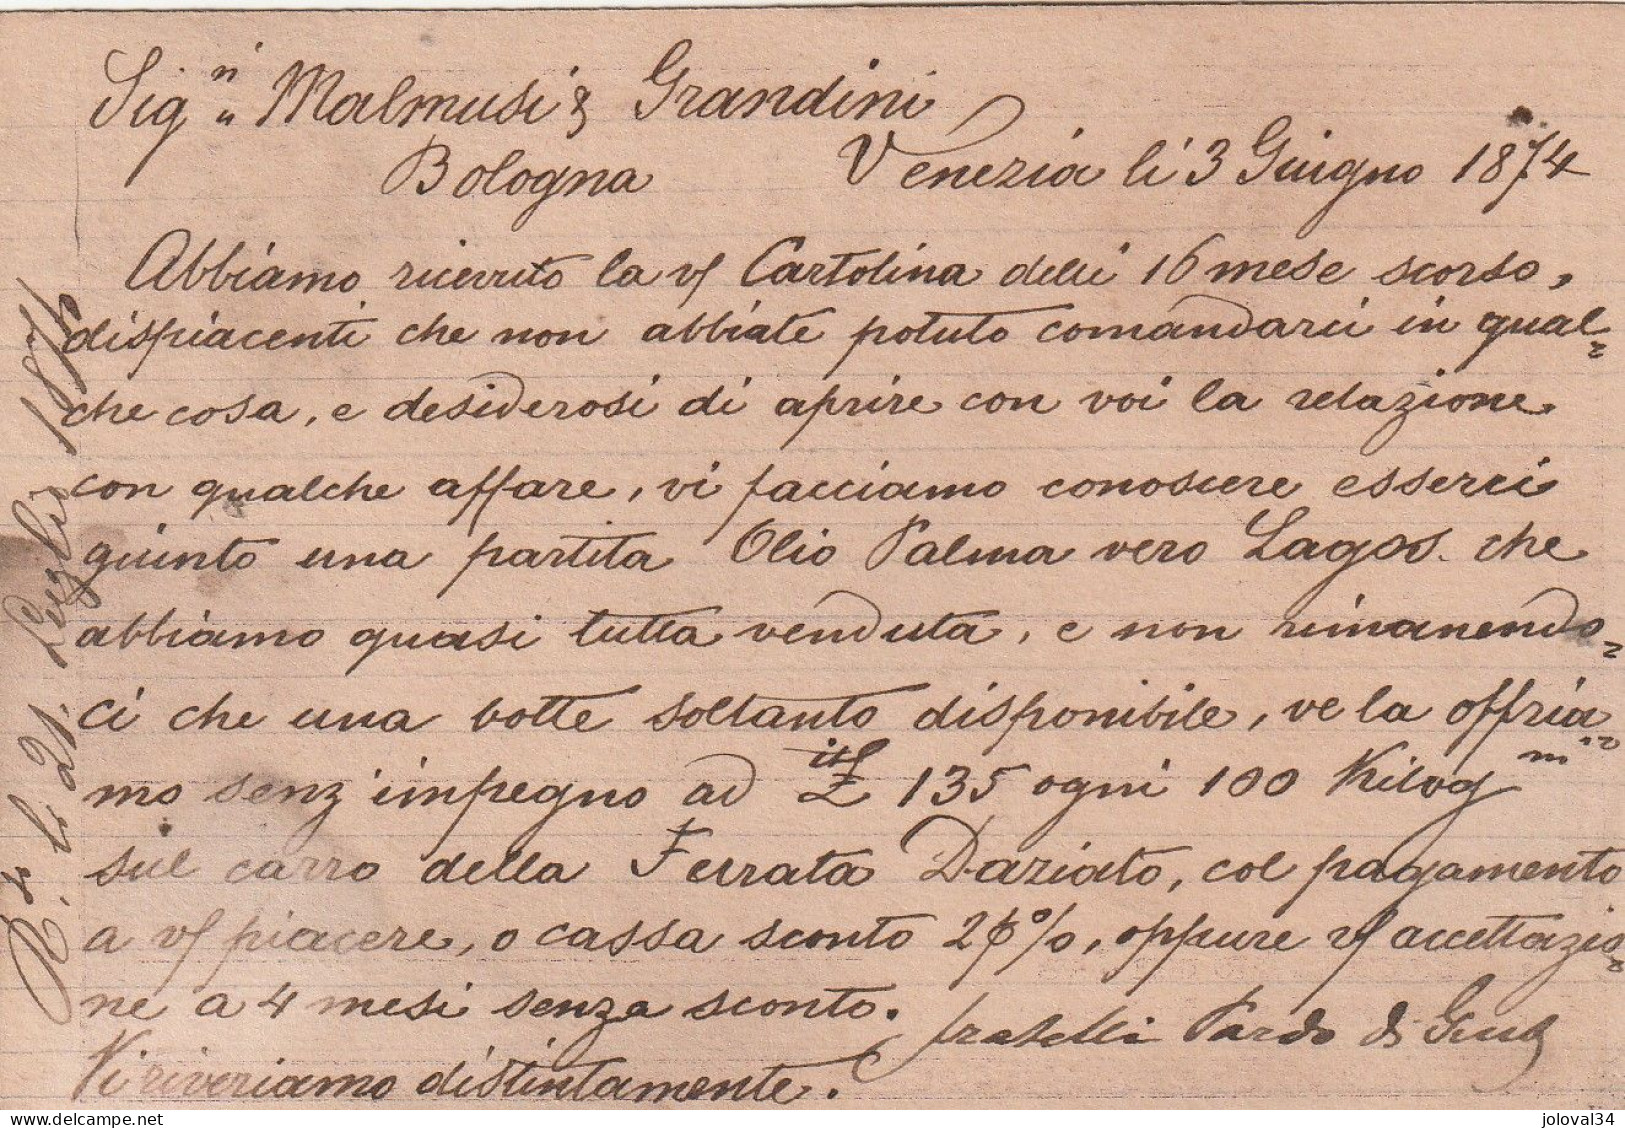 Sigri Malmusi & Grandini
Bologna
Venezia li 3 Giugno 1874
Abbiamo ricevuto la v/ Cartolina delli 16 mese scorso,
dispiacenti che non abbiate potuto comandarci in qual=
che cosa, e desiderosi di aprire con voi la relazione
con qualche affare, vi facciamo conoscere esserci
giunto una partita Olio Palma vero Lagos. che
abbiamo quasi tutta venduta, e non rimanendo=
ci che una botte soltanto disponibile, ve la offria=
mo senz'impegno ad it£ 135 ogni 100 Kilogm
sul carro della Ferrata Daziato, col pagamento
a v/ piacere, o cassa sconto 2%, oppure v/ accettazio=
ne a 4 mesi senza sconto.
Vi riveriamo distintamente.
fratelli Pardo di
li 21. Luglio 1874
joloval34